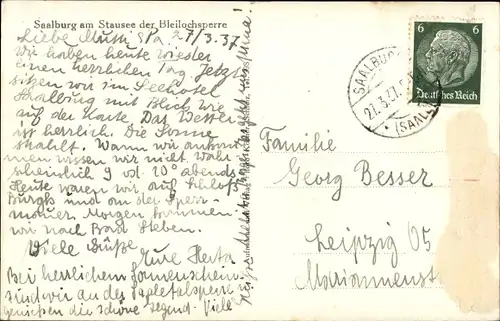 Saalburg am Stausee der Bleilochsperre
Liebe Mutti, Pa. 27/3.37.
Wir haben heute wieder
einen herrlichen Tag. Jetzt
sitzen wir im Seehotel
Saalburg mit Blick wie
auf der Karte. Das Wetter
ist herrlich. Die Sonne
strahlt. Wann wir ankom-
men wissen wir nicht. Wahr-
scheinlich 9 od. 10° abends
Heute waren wir auf Schloß
Burgk und an der Sperr-
mauer. Morgen kommen
wir nach Bad Steben.
Viele Grüße Eure Herta
Bei herrlichem Sonnenschein
sind wir an der Saaletalsperre
genießen die schöne Gegend. Viele
6 6
Deutsches Reich
SAALBURG
27.3.37.
(SAALE)
Familie
Georg Besser
Leipzig O5
Mariannenstr